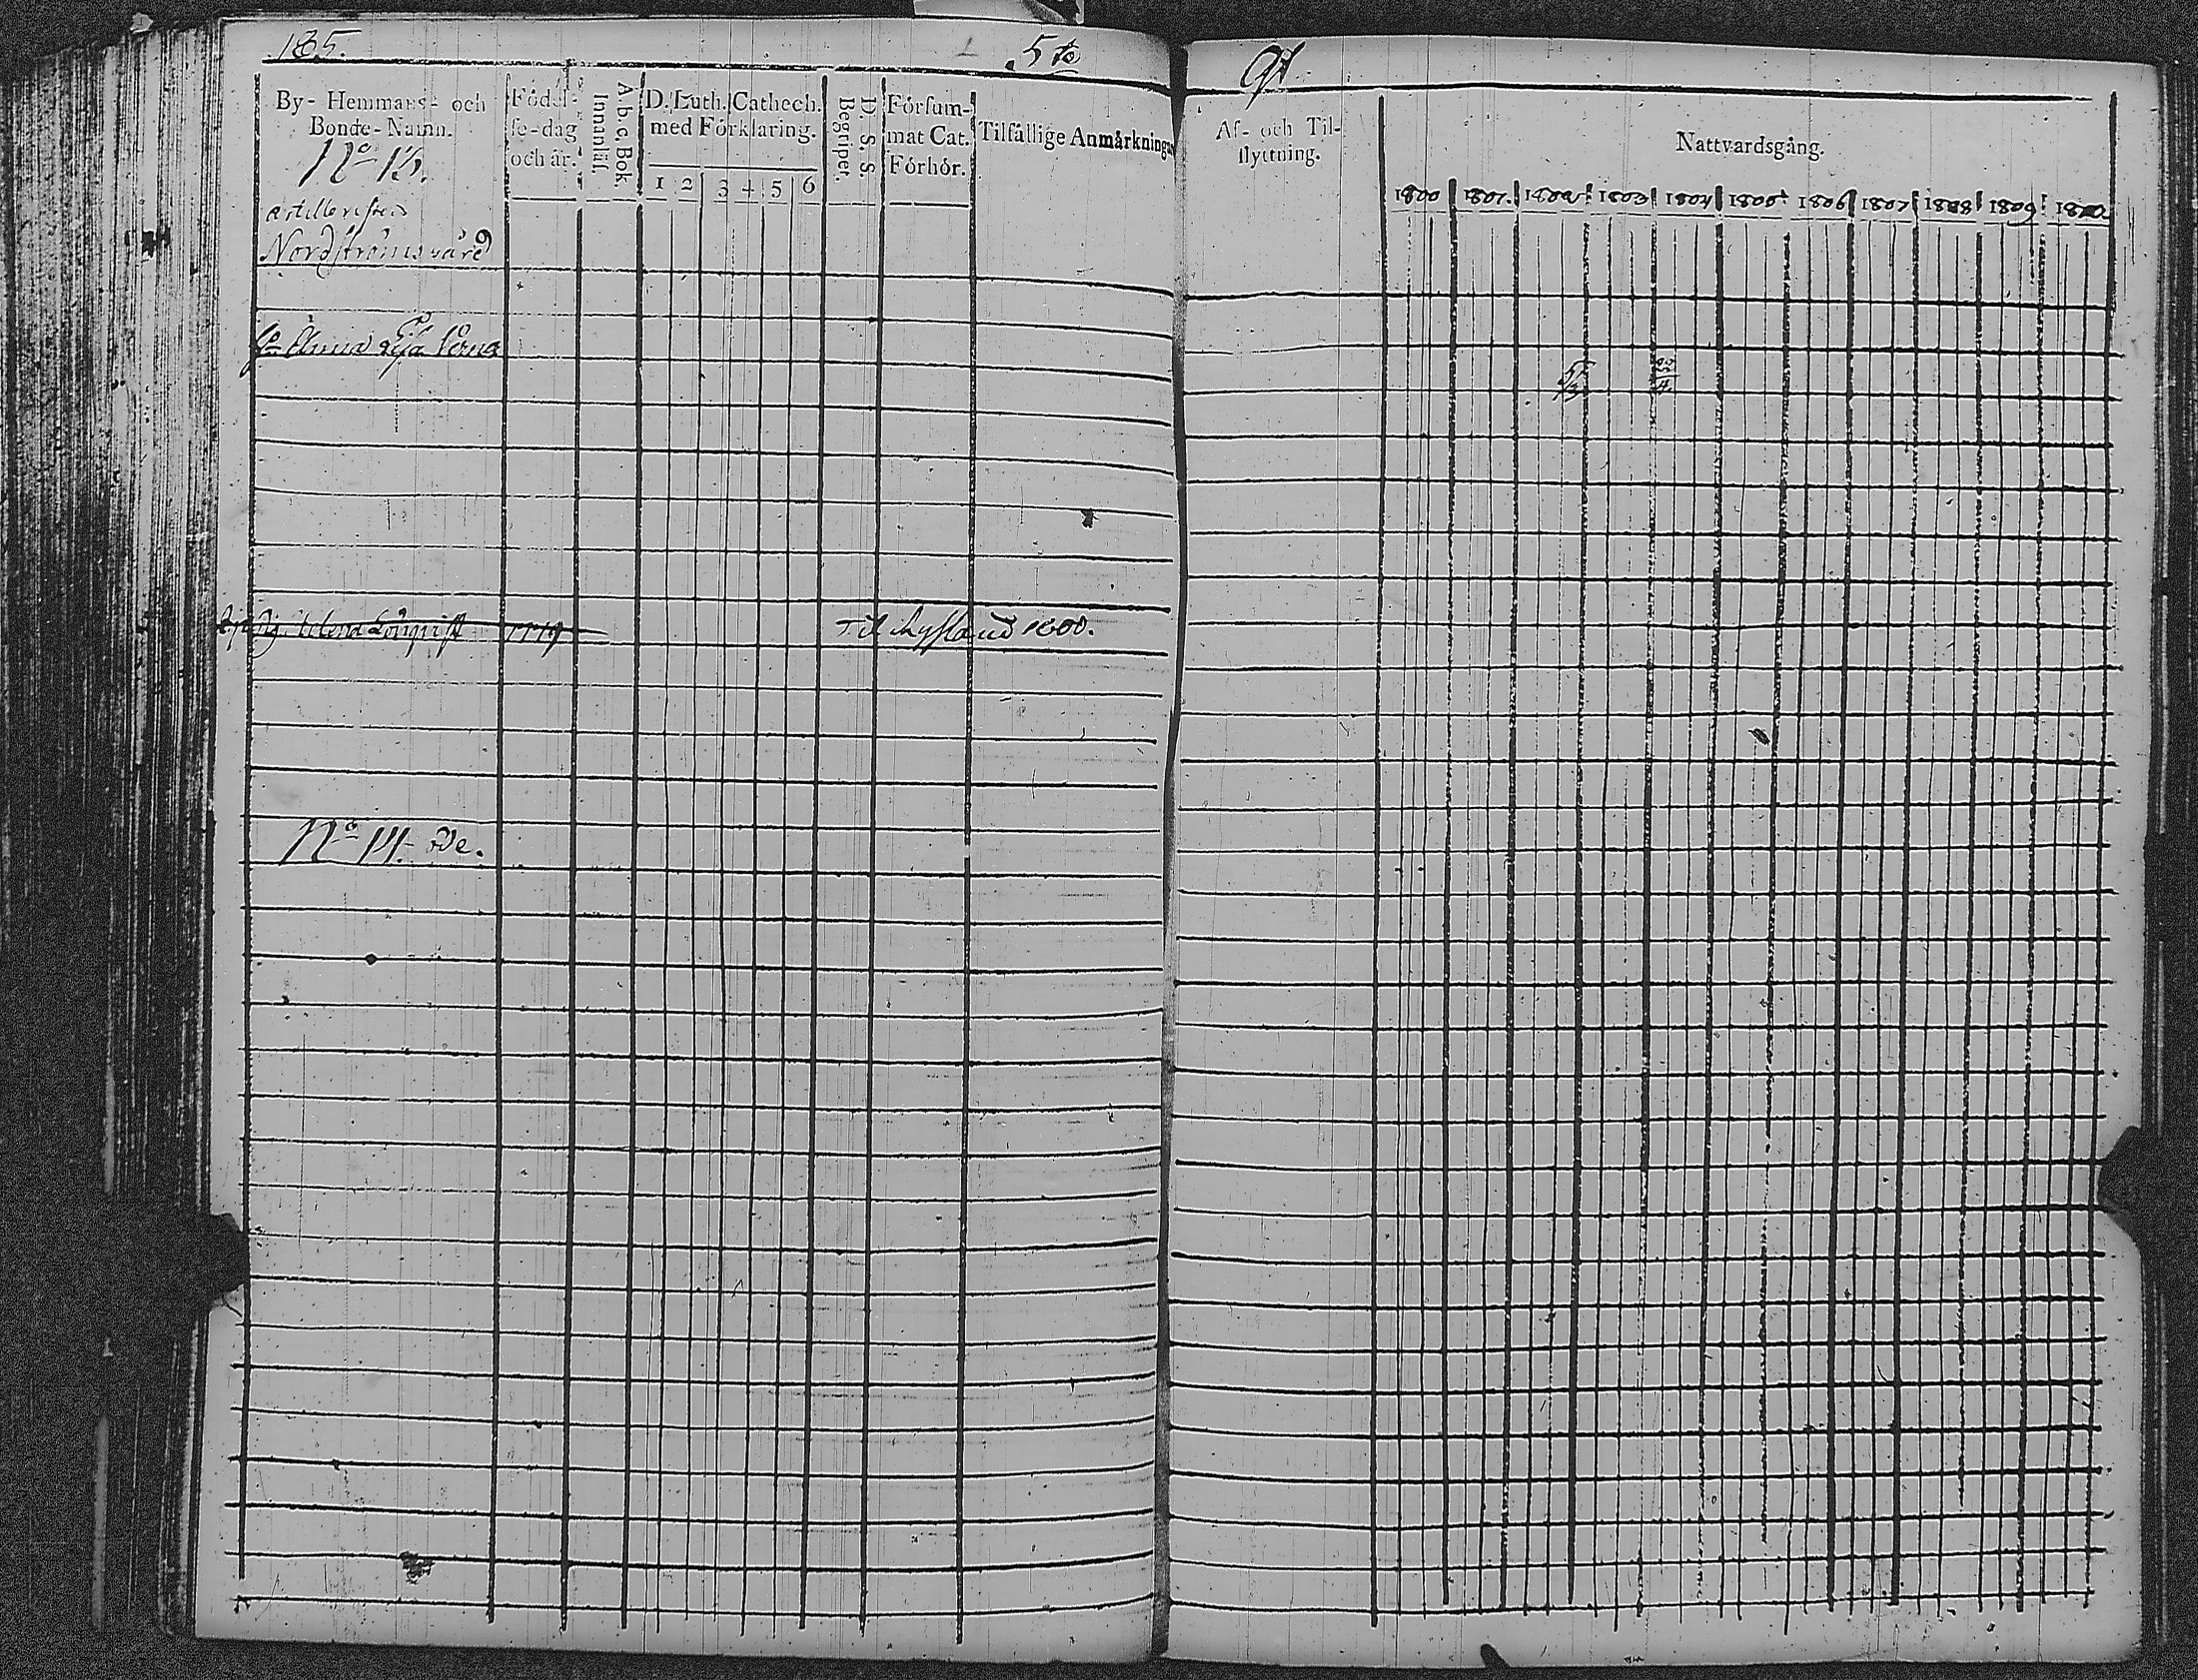 185.
5te
Qt.
By- Hemmans- och
Bonde-Namn.
Födel-
se-dag
och år.
A.b.c.Bok.
Innanläs.
D. Luth. Cathech.
med Förklaring.
1 2 3 4 5 6
D. S. S.
Begriper.
Försum-
mat Cat.
Förhör.
Tilfällige Anmärkningar
Af- och Til-
flyttning.
Nattvardsgång.
1800 1801. 1802 1803 1804 1805 1806 1807 1808 1809 1810
No 13.
Artilleristen
Nordströms gård
Anna
5/3
20/4
Helena Lönqvist 1779 Til Ryssland 1800.
No 14. Öde.